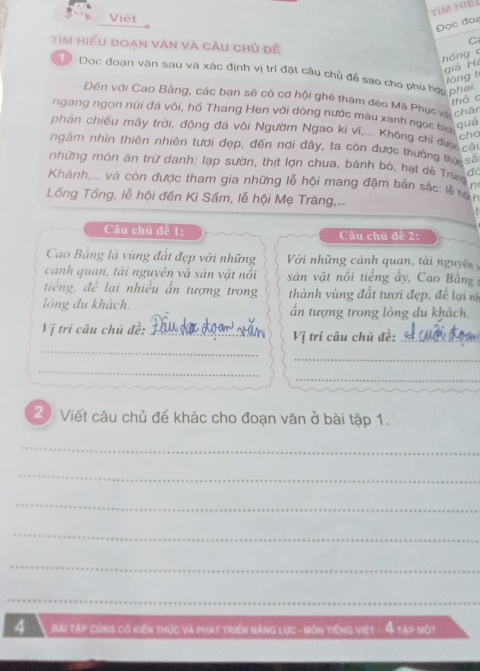 TÌM HIỂU
Đọc đoạ
Viết
TÌM HIỂU ĐOẠN VĂN VÀ CÂU CHỦ ĐỀ
1 Đọc đoạn văn sau và xác định vị trí đặt câu chủ đề sao cho phù hợp
Đến với Cao Bằng, các bạn sẽ có cơ hội ghé thăm đèo Mã Phục với
ngang ngọn núi đá vôi, hồ Thang Hen với dòng nước màu xanh ngọc bích
phản chiếu mây trời, động đá vôi Ngườm Ngao kì vĩ,... Không chỉ được
ngắm nhìn thiên nhiên tươi đẹp, đến nơi đây, ta còn được thưởng thức
những món ăn trứ danh: lạp sườn, thịt lợn chua, bánh bò, hạt dẻ Trùng
Khánh,... và còn được tham gia những lễ hội mang đậm bản sắc: lễ hội
Lồng Tồng, lễ hội đền Kì Sầm, lễ hội Mẹ Trăng,...
Câu chủ đề 1:
Cao Bằng là vùng đất đẹp với những
cảnh quan, tài nguyên và sản vật nổi
tiếng, để lại nhiều ấn tượng trong
lòng du khách.
Vị trí câu chủ đề: Đầu đoạn văn
Câu chủ đề 2:
Với những cảnh quan, tài nguyên
sản vật nổi tiếng ấy, Cao Bằng
thành vùng đất tươi đẹp, để lại nh
ấn tượng trong lòng du khách.
Vị trí câu chủ đề: cuối đoạn
2 Viết câu chủ đề khác cho đoạn văn ở bài tập 1.
4 BÀI TẬP CỦNG CỐ KIẾN THỨC VÀ PHÁT TRIỂN NĂNG LỰC - MÔN TIẾNG VIỆT - 4 TẬP MỘT